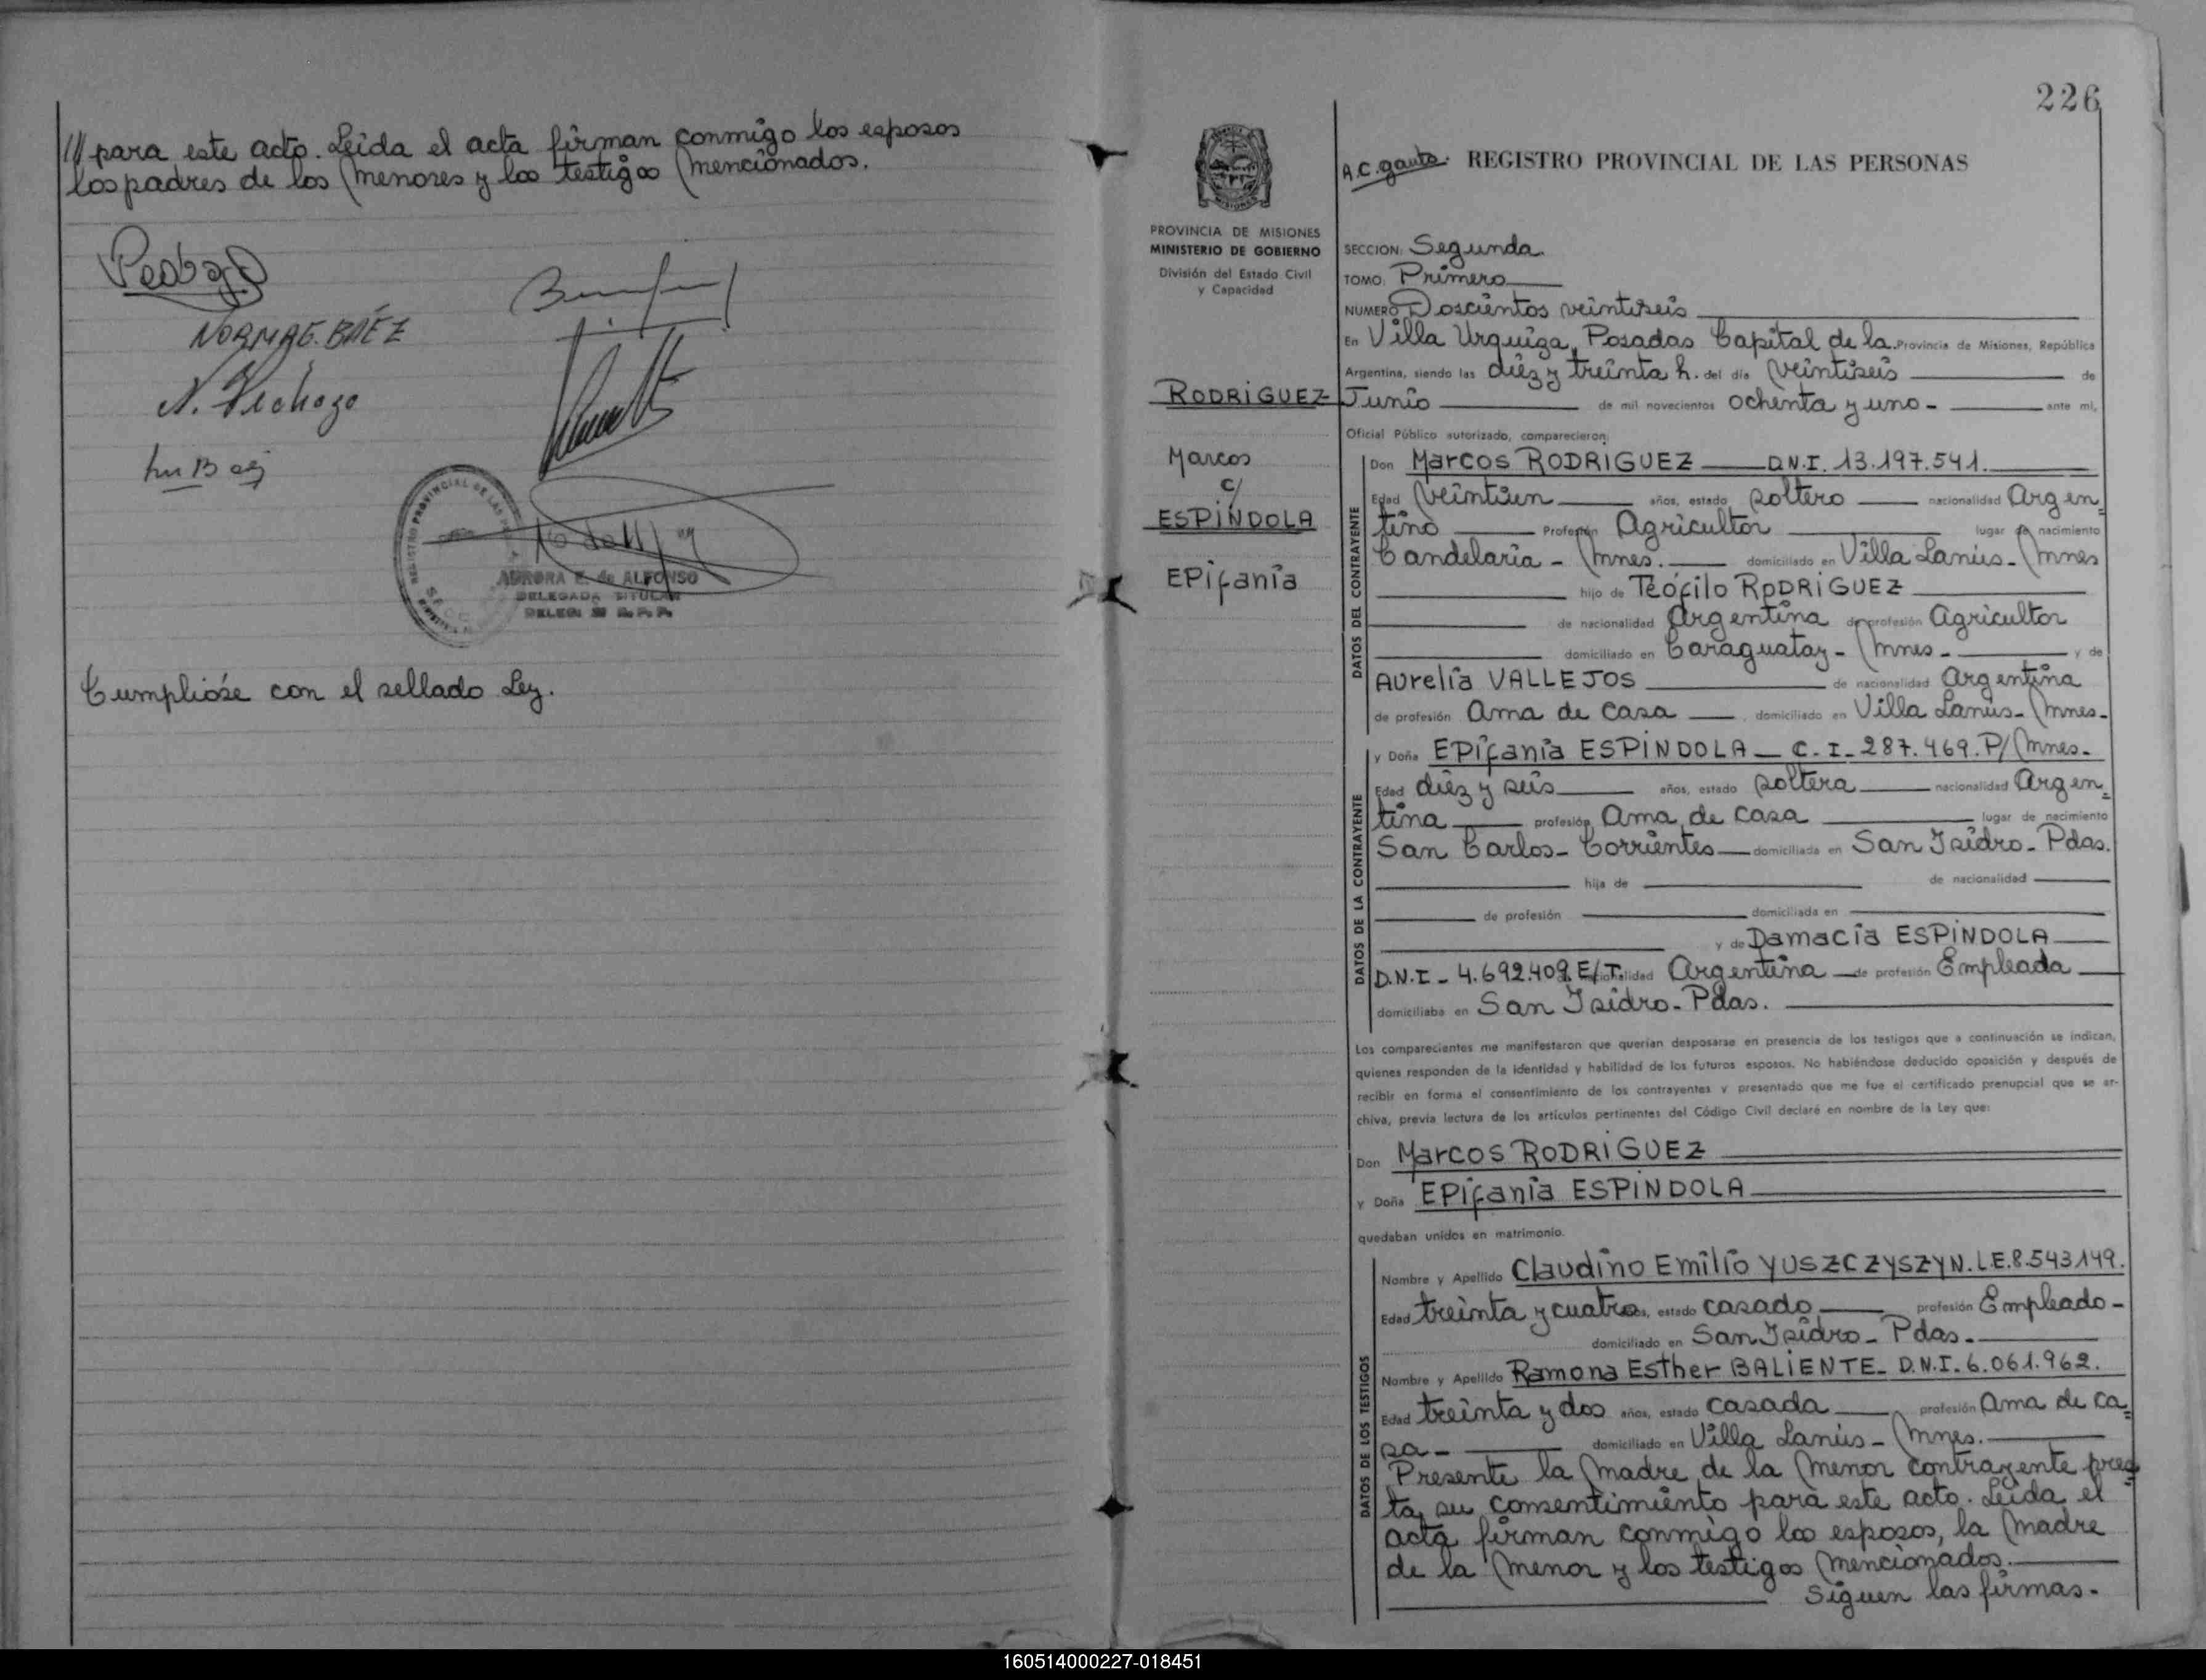 /// para este acto. Leída el acta firman conmigo los esposos
los padres de los menores y los testigos mencionados.
NORMA E. BÁEZ
REGISTRO PROVINCIAL DE LAS
AURORA E. de ALFONSO
DELEGADA TITULAR
Cumplióse con el sellado Ley.
226
A.C. gauto. REGISTRO PROVINCIAL DE LAS PERSONAS
PROVINCIA DE MISIONES
MINISTERIO DE GOBIERNO
División del Estado Civil
y Capacidad
RODRIGUEZ
Marcos
c/
ESPINDOLA
EPifania
SECCION: Segunda.
TOMO: Primero
NUMERO Doscientos veintiseis
En Villa Urquiza, Posadas Capital de la Provincia de Misiones, República
Argentina, siendo las diéz y treinta h. del día veintiseis de
Junio de mil novecientos ochenta y uno - ante mi,
Oficial Público autorizado, comparecieron:
DATOS DEL CONTRAYENTE
Don Marcos RODRIGUEZ D.N.I. 13.197.541.
Edad veintiún años, estado soltero nacionalidad Argen=
tino Profesión Agricultor lugar de nacimiento
Candelaria - Mnes. domiciliado en Villa Lanús - Mnes
hijo de Teófilo RODRIGUEZ
de nacionalidad Argentina de profesión Agricultor
domiciliado en Caraguatay - Mnes - y de
Aurelia VALLEJOS de nacionalidad Argentina
de profesión Ama de casa domiciliado en Villa Lanús - Mnes -
DATOS DE LA CONTRAYENTE
y Doña EPifania ESPINDOLA - C.I - 287.469. P/Mnes -
Edad diéz y seis años, estado soltera nacionalidad Argen=
tina profesión Ama de casa lugar de nacimiento
San Carlos - Corrientes domiciliada en San Isidro - Pdas.
hija de de nacionalidad
de profesión domiciliada en
y de Damacia ESPINDOLA
D.N.I - 4.692.409. E/T. nacionalidad Argentina de profesión Empleada
domiciliaba en San Isidro - Pdas.
Los comparecientes me manifestaron que querían desposarse en presencia de los testigos que a continuación se indican,
quienes responden de la identidad y habilidad de los futuros esposos. No habiéndose deducido oposición y después de
recibir en forma el consentimiento de los contrayentes y presentado que me fue el certificado prenupcial que se ar-
chiva, previa lectura de los artículos pertinentes del Código Civil declaré en nombre de la Ley que:
Don Marcos RODRIGUEZ
y Doña EPifania ESPINDOLA
quedaban unidos en matrimonio.
DATOS DE LOS TESTIGOS
Nombre y Apellido Claudino Emilio YUSZCZYSZYN. L.E. 8.543.149.
Edad treinta y cuatro años, estado casado profesión Empleado -
domiciliado en San Isidro - Pdas -
Nombre y Apellido Ramona Esther BALIENTE - D.N.I. 6.061.962.
Edad treinta y dos años, estado casada profesión Ama de ca=
sa - domiciliado en Villa Lanús - Mnes.
Presente la madre de la menor contrayente pres=
ta su consentimiento para este acto. Leída el
acta firman conmigo los esposos, la madre
de la menor y los testigos mencionados.
Siguen las firmas -
160514000227-018451